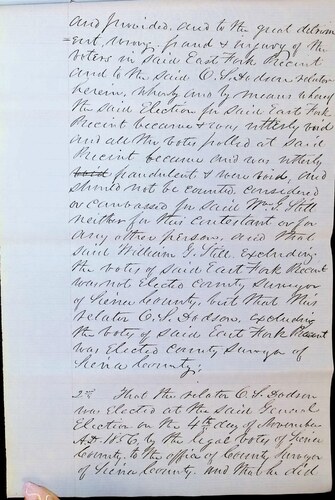 and provided, and to the great detrim
=ent, wrong, fraud & injury of the
voters in said East Fork Precent
and to the said O. S. Dodson relator
herein, whereby and by means whereof
the said Election for said East Fork
Precent became & was utterly void
and all the votes polled at said
Precent became and was utterly
void fraudulent & were void, and
should not be counted, considered
or canvassed for said Wm G. Still
neither for this Contestant or for
any other person, and that
said William G. Still, excluding
the votes of said East Fork Precent
was not Elected County Surveyor
of County, but that this
relator O. S. Dodson, excluding
the votes of said East Fork Precent
was Elected County Surveyor of
County;
2nd That the relator O. S. Dodson
was Elected at the said General
Election on the 4th day of November
A.D. by the legal votes of
County, to the office of County Surveyor
of County. and that he did